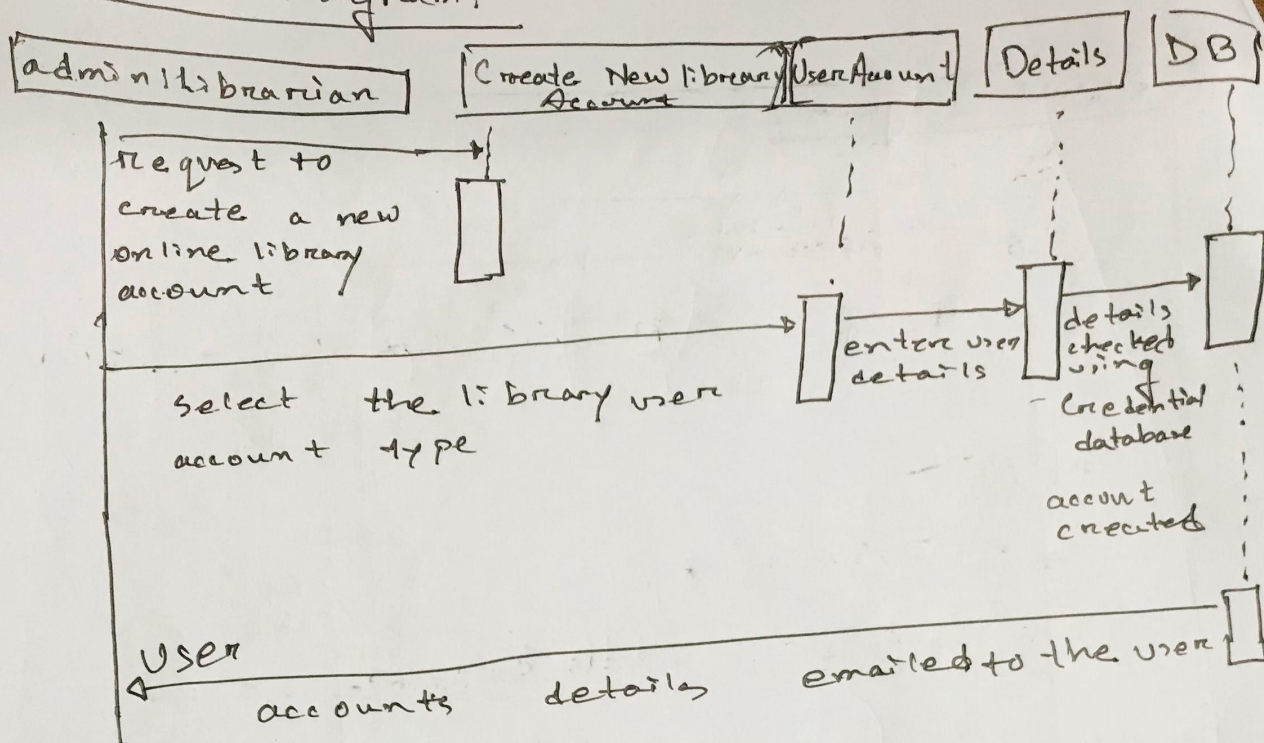 admin/librarian
Create New library
Account
User Account
Details
DB
request to
create a new
online library
account
select the library user
account type
enter user
details
details
checked
using
credential
database
account
created
User
accounts details emailed to the user